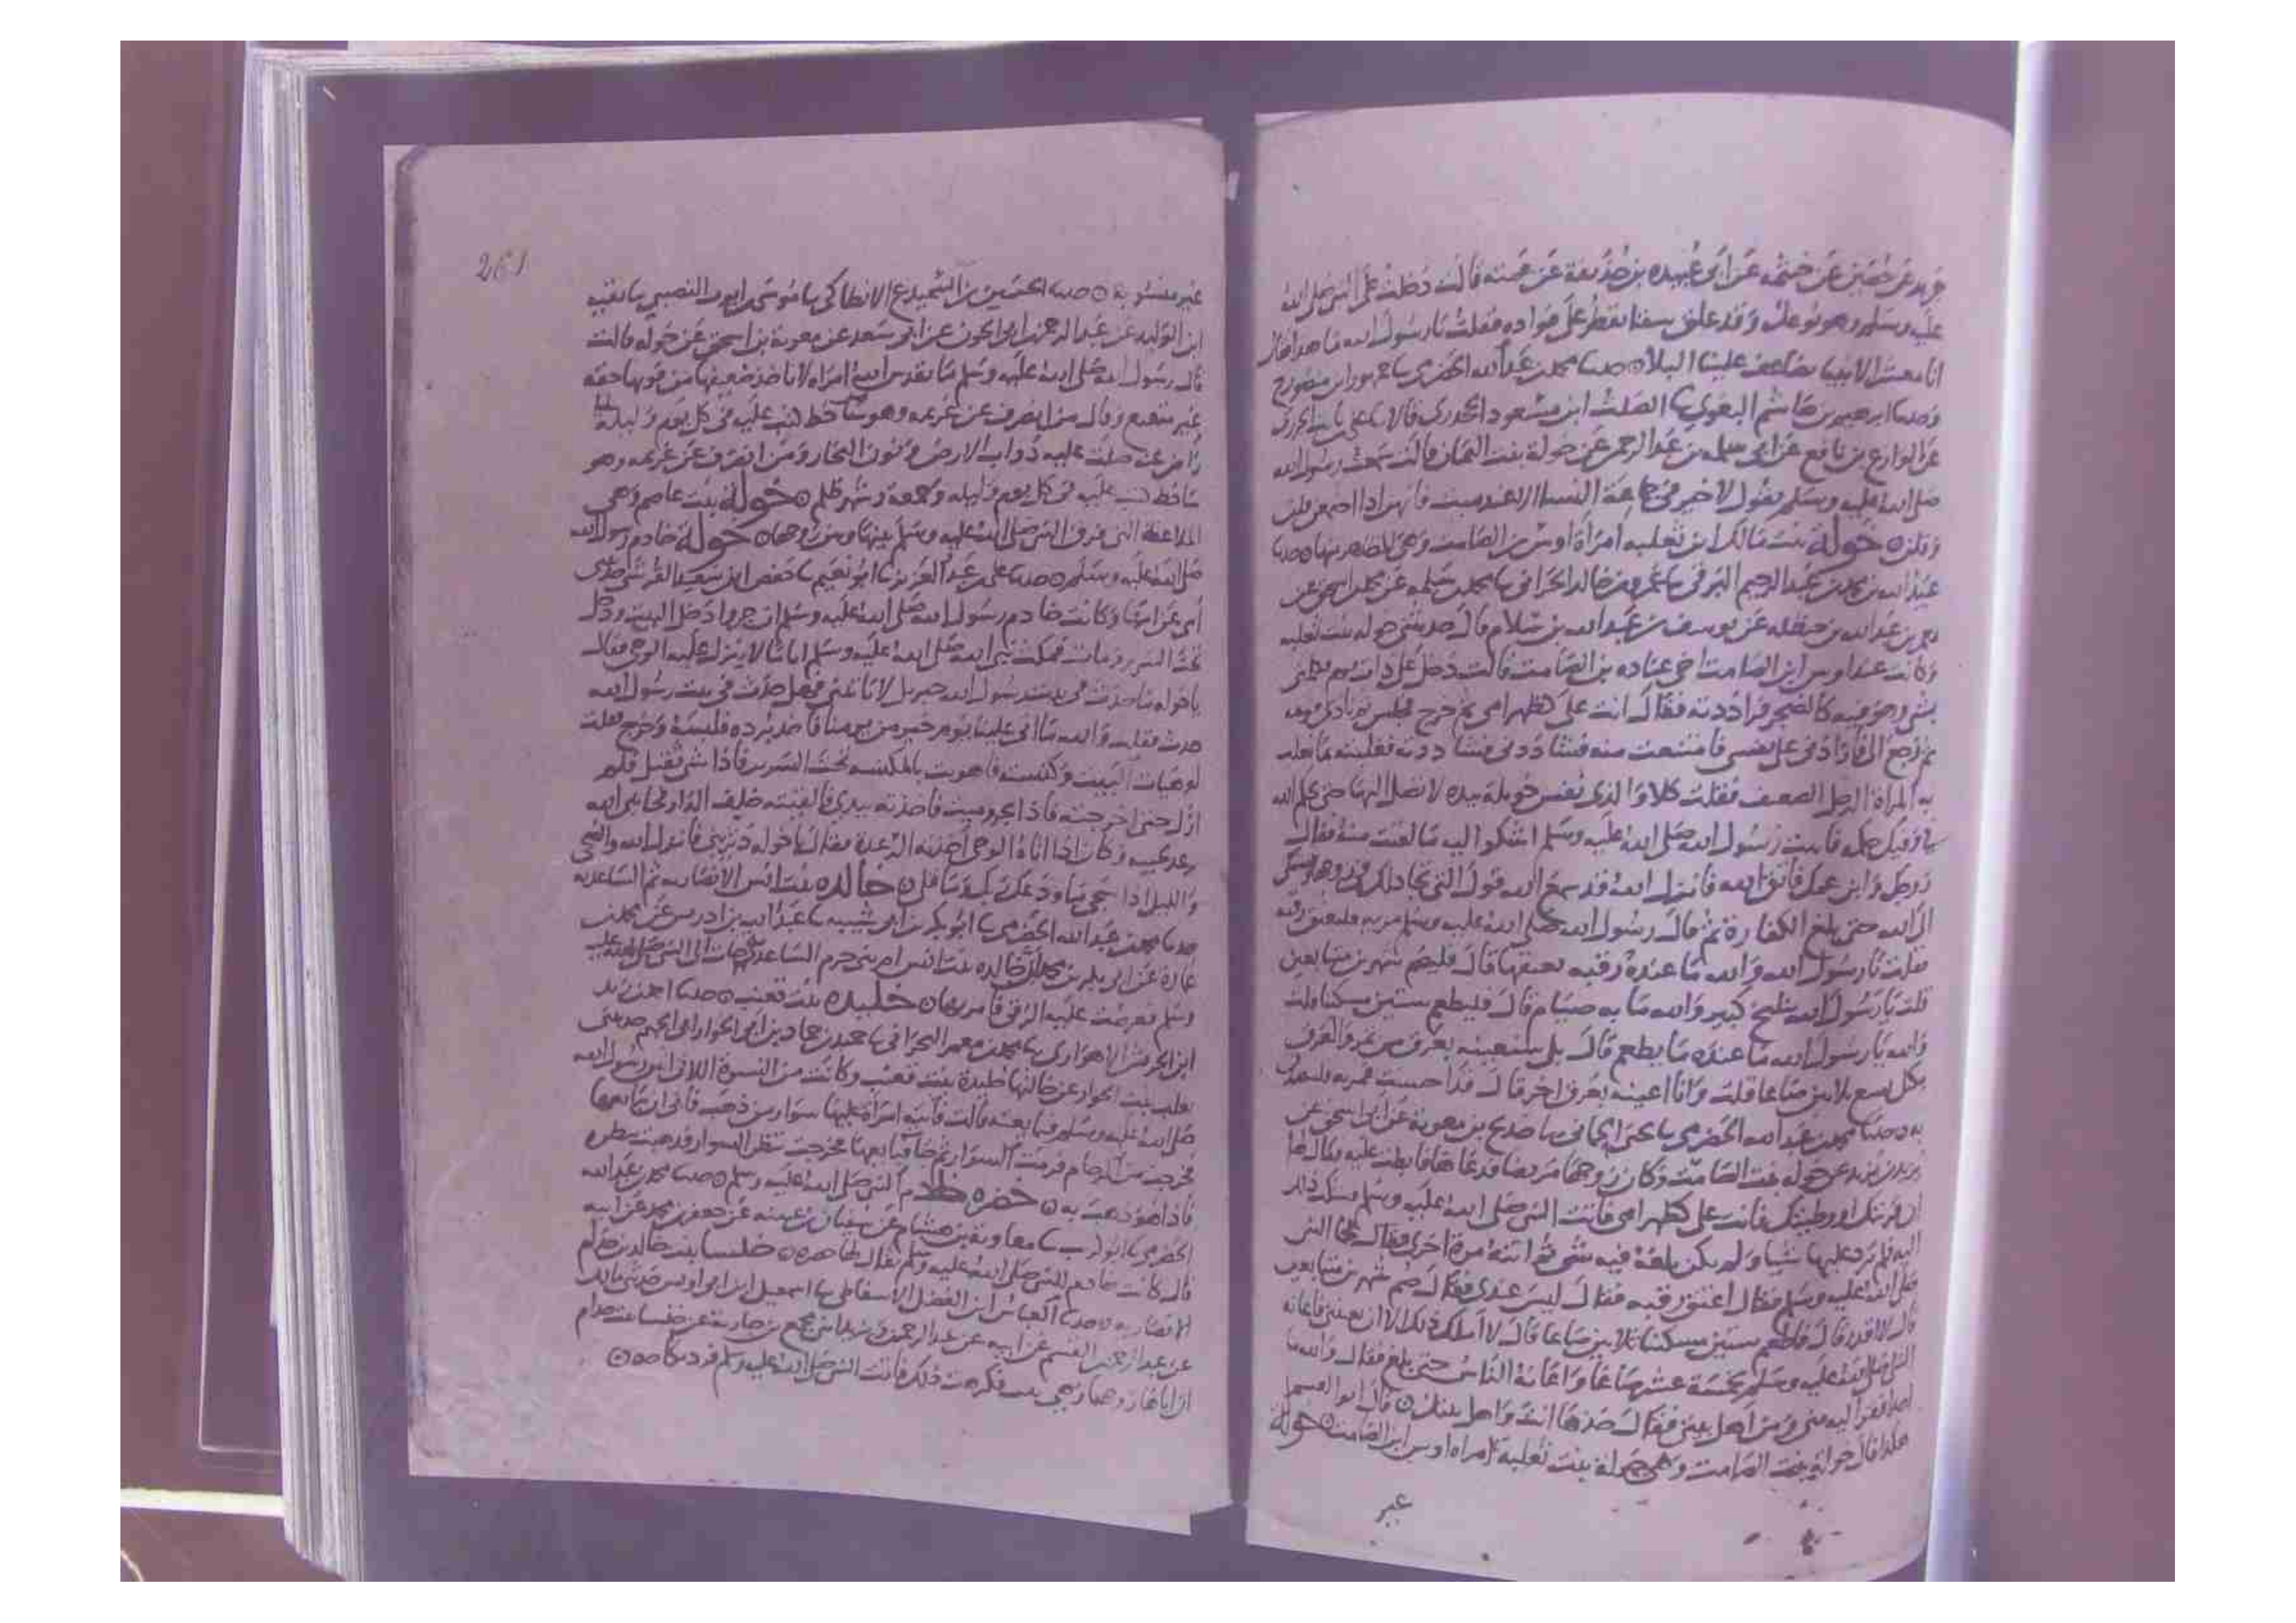 عليه وسلم وهو موعك وقد علق سقا يقطر على فواده فقلت يا رسول الله ما هذا فقال
انا معشر الانبيا يضاعف علينا البلا ه حدثنا محمد بن عبد الله الحضرمي
وحدثنا ابرهيم بن هاشم البغوي الصلت ابن مسعود الجحدري قالا
عن الوازع بن نافع عن ابي سلمه بن عبد الرحمن عن خولة بنت اليمان قالت سمعت رسول الله
صلى الله عليه وسلم يقول لا خير في جماعة النسا الا عند ميت فانهن اذا اجتمعن قلن
وقلن ه خولة بنت مالك ابن ثعلبه امراة اوس بن الصامت وهي المظاهر منها ه حدثنا
عبد الله بن محمد بن عبد الرحيم البرقي عمرو بن خالد الحراني محمد بن سلمه عن محمد بن اسحق عن
معمر بن عبد الله بن حنظله عن يوسف بن عبد الله بن سلام قال حدثتني خوله بنت ثعلبه
وكانت عند اوس ابن الصامت اخي عباده بن الصامت قالت دخل علي ذات يوم فكلمني
بشي وهو فيه كالضجر فراددته فقال انت علي كظهر امي ثم خرج فجلس في نادي قومه
ثم رجع الي فارادني على نفسي فامتنعت منه فشادني فشاددته فغلبته بما تغلب
به المراة الرجل الضعيف فقلت كلا والذي نفس خويلة بيده لا تصل الي حتى يحكم الله
في وفيك حكمه فاتيت رسول الله صلى الله عليه وسلم اشكوا اليه ما لقيت منه فقال
زوجك وابن عمك فاتقي الله فانزل الله قد سمع الله قول التي تجادلك في زوجها وتشتكي
الى الله حتى بلغ الكفارة ثم قال رسول الله صلى الله عليه وسلم مريه فليعتق رقبه
فقلت يا رسول الله والله ما عنده رقبه يعتقها قال فليصم شهرين متتابعين
قلت يا رسول الله شيخ كبير والله ما به صيام قال فليطعم ستين مسكينا قلت
والله يا رسول الله ما عنده ما يطعم قال بل ستعينه بعرق من تمر والعرق
مكتل يسع ثلاثين صاعا قلت وانا اعينه بعرق اخر قال قد احسنت فمريه فليتصدق
به ه حدثنا محمد بن عبد الله الحضرمي يحيى الحماني حديج بن معوية عن ابي اسحق عن
يزيد بن يزيد عن خوله بنت الصامت وكان زوجها مريضا فدعاها فابطت عليه فقال لها
ان قربتك او وطيتك فانت علي كظهر امي فاتت النبي صلى الله عليه وسلم فشكت ذلك
اليه فلم يرد عليها شيا ولم يكن بلغه فيه شي ثم اتته مرة اخرى فقال لها النبي
صلى الله عليه وسلم فقال اعتق رقبه فقال ليس عندي فقال صم شهرين متتابعين
قال لا اقدر قال فاطعم ستين مسكينا ثلاثين صاعا قال لا املك ذلك الا ان تعينني فاعانه
النبي صلى الله عليه وسلم بخمسة عشر صاعا واعانه الناس حتى بلغ فقال والله ما
احد افقر اليه مني ومن اهل بيتي فقال خذها انت واهل بيتك ه قال ابو القسم
هكذا قال خولة بنت الصامت وهي خولة بنت ثعلبة امراه اوس ابن الصامت ه خولة
غير
261
غير منسوبة ه حدثنا الحسين بن السميدع الانطاكي موسى بن ايوب النصيبي بقيه
ابن الوليد عن عبد الرحمن بن ابي الجون عن ابي سعد عن معوية بن اسحق عن خوله قالت
قال رسول الله صلى الله عليه وسلم ما يقدس الله امة لا ياخذ ضعيفها من قويها حقه
غير متعتع وقال من انصرف عن غريمه وهو
راض عنه صلت عليه دواب الارض ونون البحار ومن انصرف عن غريمه وهو
ساخط كتب عليه في كل يوم وليله وجمعة وشهر ظلم ه خولة بنت عاصم وهي
الملاعنة التي فرق النبي صلى الله عليه وسلم بينها وبين زوجها ه خولة خادم رسول الله
صلى الله عليه وسلم ه حدثنا علي بن عبد العزيز ابو نعيم حفص ابن سعيد القرشي حدثتني
امي عن امها وكانت خادم رسول الله صلى الله عليه وسلم ان جروا دخل البيت ودخل
تحت السرير ومات فمكث نبي الله صلى الله عليه وسلم اياما لا ينزل عليه الوحي فقال
يا خوله ما حدث في بيت رسول الله جبريل لا ياتيني فهل حدث في بيت رسول الله
حدث فقلت والله ما اتى علينا يوم خير من يومنا فاخذ برده فلبسه وخرج فقلت
لو هيات البيت وكنسته فاهويت بالمكنسه تحت السرير فاذا شي ثقيل فلم
ازل حتى اخرجته فاذا بجرو ميت فاخذته بيدي فالقيته خلف الدار فجا نبي الله
ترعد لحيته وكان اذا اتاه الوحي اخذته الرعدة فقال يا خوله دثريني فانزل الله والضحى
والليل اذا سجى ما ودعك ربك وما قلى ه خالده بنت انس الانصاريه ثم الساعديه
حدثنا محمد بن عبد الله الحضرمي ابو بكر بن ابي شيبه عبد الله بن ادريس عن محمد بن
عمارة عن ابي بكر بن محمد ان خالده بنت انس ام بني حزم الساعدي جات الى النبي صلى الله عليه
وسلم فعرضت عليه الرقى فامر بها ه خليده بنت قعنب ه حدثنا احمد بن
ابن الحريش الاهوازي محمد بن معمر البحراني حميد بن حماد بن ابي الخوار حدثتني
تغلب بنت الخوار عن خالتها خليدة بنت قعنب وكانت من النسوة اللاتي اتين رسول الله
صلى الله عليه وسلم فبايعنه قالت فاتته امراة عليها سوار من ذهب فابى ان يبايعها
فخرجت من الزحام فرمت السوار ثم جات فبايعها فخرجت تنظر السوار
فاذا هو ذهب به ه خضره خادم النبي صلى الله عليه وسلم ه حدثنا محمد بن عبد الله
الحضرمي ابو كريب معاوية بن هشام عن سفيان بن عيينه عن جعفر بن محمد عن ابيه
قال كانت خادم للنبي صلى الله عليه وسلم يقال لها خضره ه خنسا بنت خذام
الانصاريه ه حدثنا العباس ابن الفضل الاسفاطي اسمعيل ابن ابي اويس حدثني مالك
عن عبد الرحمن بن القسم عن ابيه عن عبد الرحمن بن يزيد بن مجمع بن جارية عن خنسا بنت خذام
ان اباها زوجها وهي ثيب فكرهت ذلك فاتت النبي صلى الله عليه وسلم فرد نكاحه ه